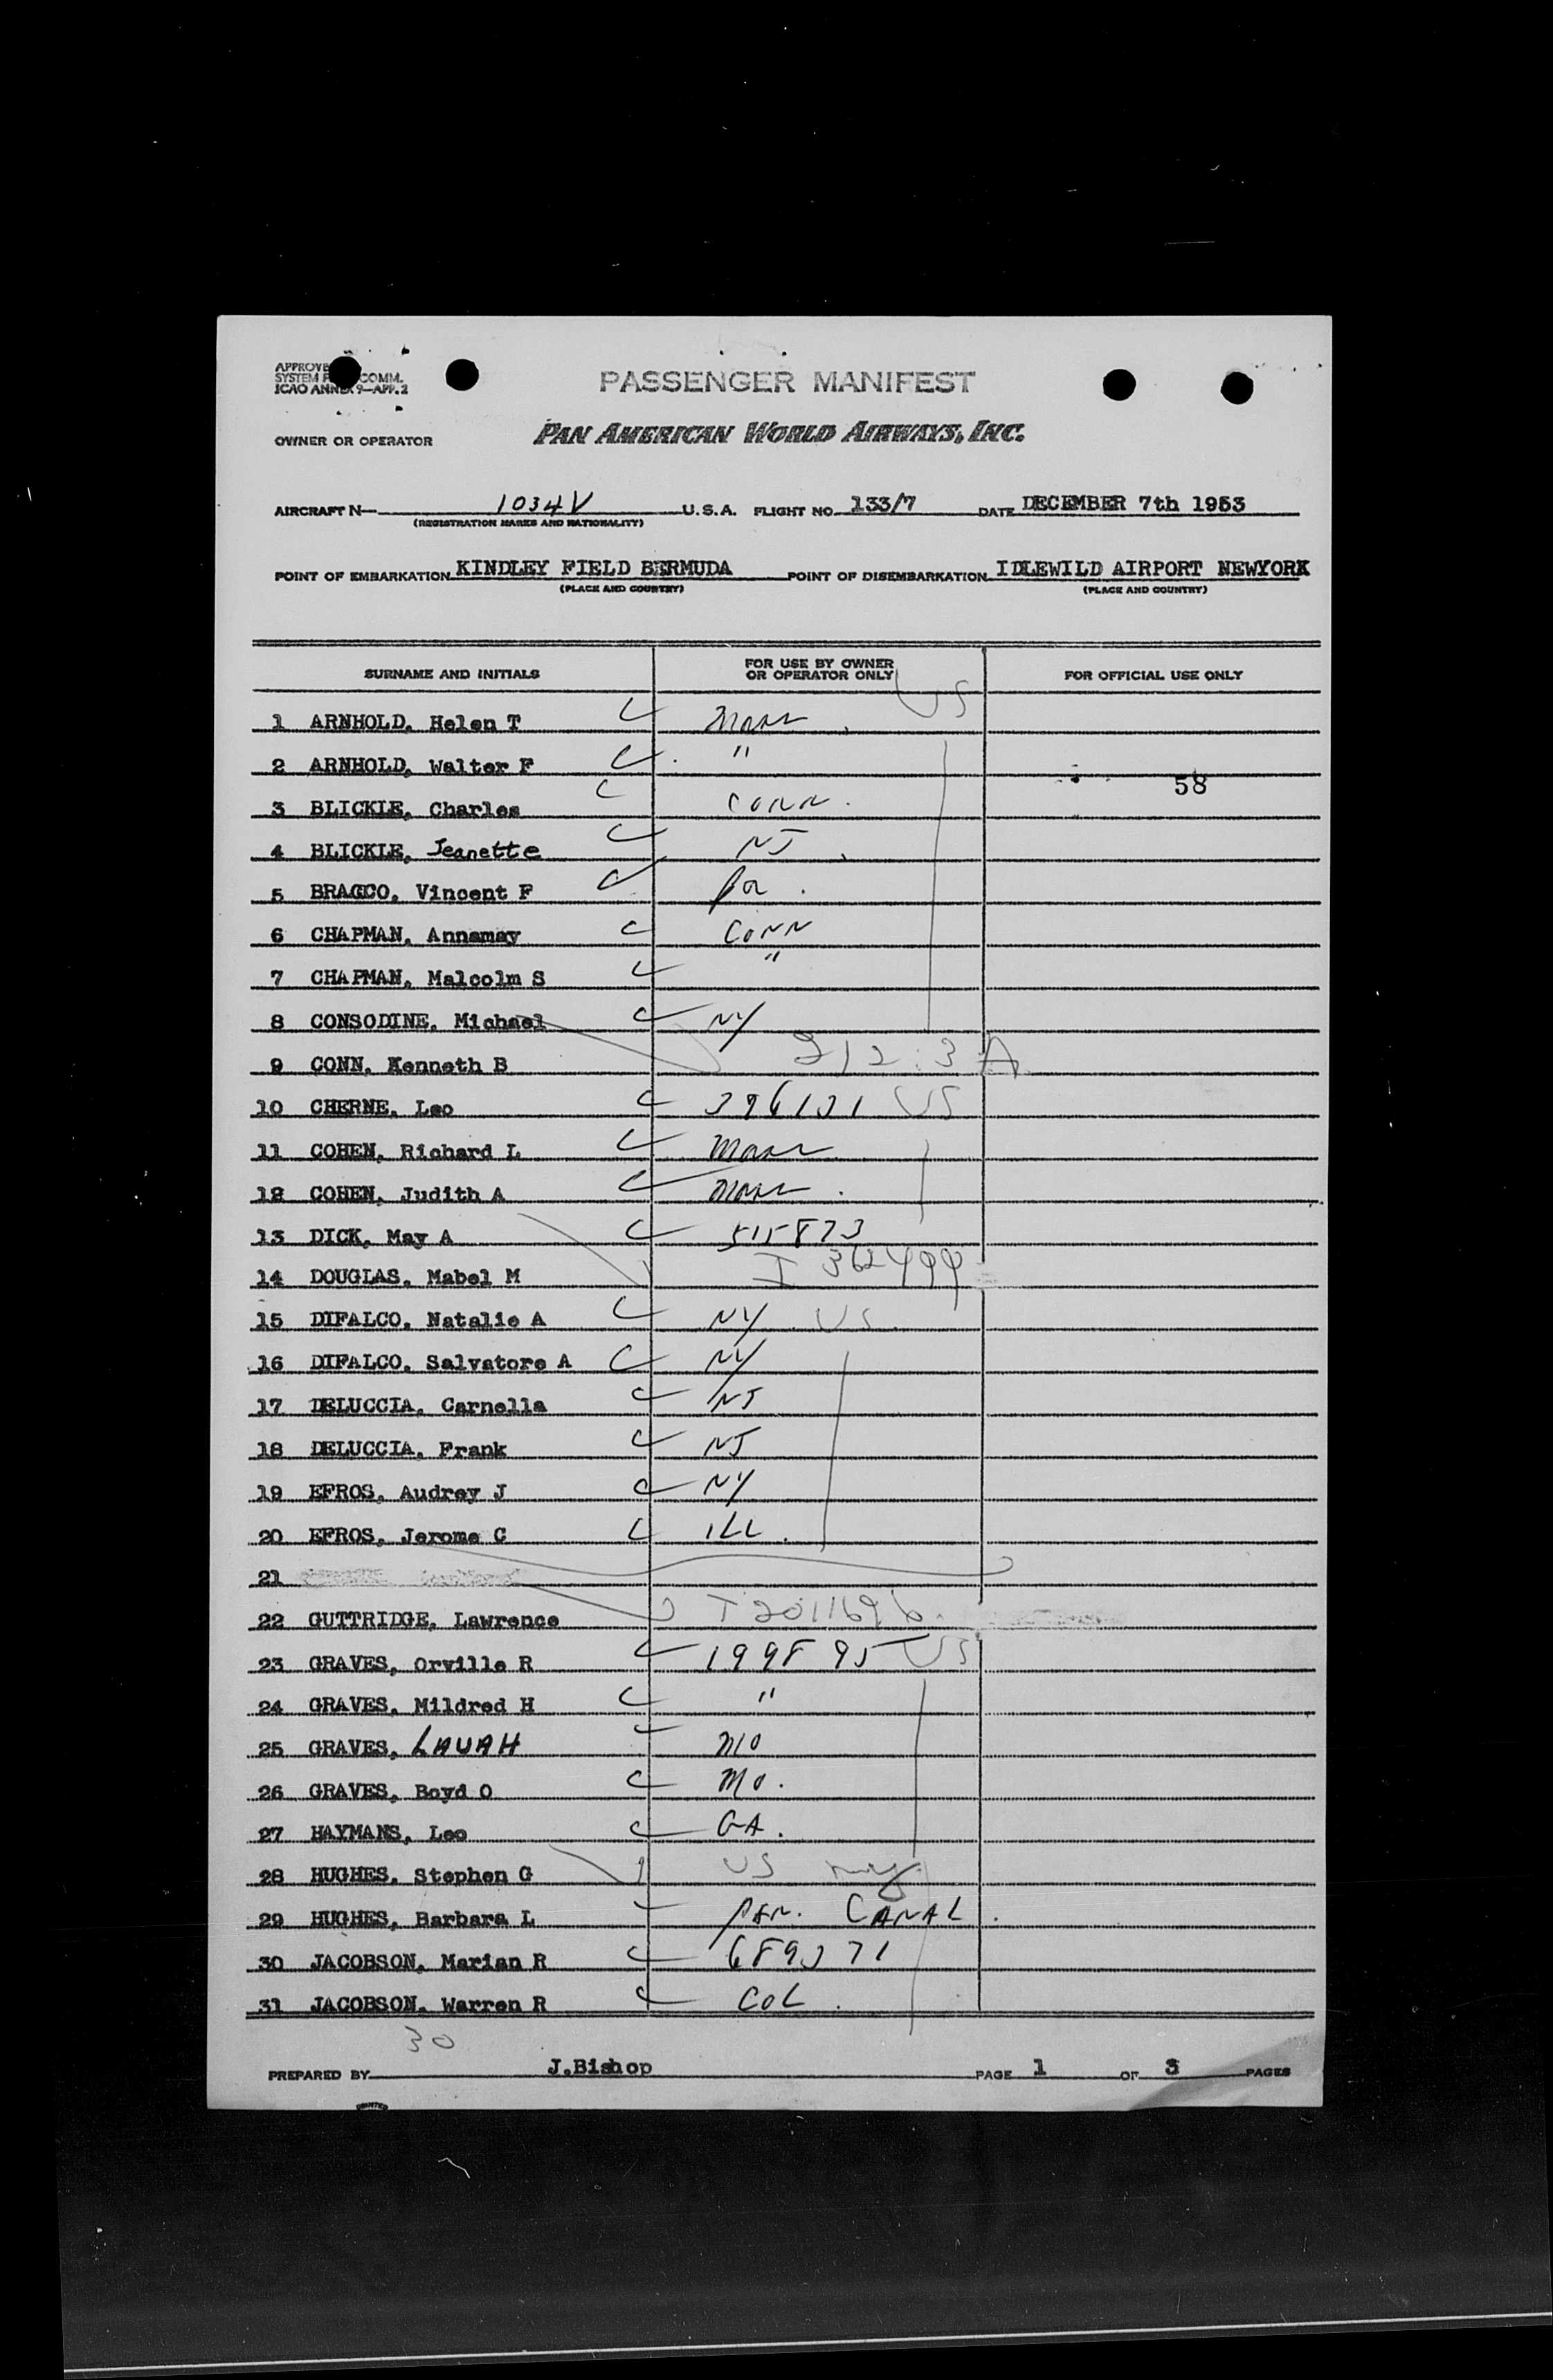 PASSENGER MANIFEST
OWNER OR OPERATOR PAN AMERICAN WORLD AIRWAYS, INC.
AIRCRAFT N— 1034V U.S.A. FLIGHT NO. 133/7 DATE DECEMBER 7th 1953
(REGISTRATION MARKS AND NATIONALITY)
POINT OF EMBARKATION KINDLEY FIELD BERMUDA POINT OF DISEMBARKATION IDLEWILD AIRPORT NEWYORK
(PLACE AND COUNTRY) (PLACE AND COUNTRY)
SURNAME AND INITIALS FOR USE BY OWNER OR OPERATOR ONLY FOR OFFICIAL USE ONLY
1 ARNHOLD, Helen T C Mass US
2 ARNHOLD, Walter F C "
58
3 BLICKLE, Charles C CONN.
4 BLICKLE, Jeanette C NJ
5 BRAGCO, Vincent F C Pa.
6 CHAPMAN, Annamay C CONN
7 CHAPMAN, Malcolm S C "
8 CONSODINE, Michael C NY
9 CONN, Kenneth B
10 CHERNE, Leo C US
11 COHEN, Richard L C Mass
12 COHEN, Judith A C Mass.
13 DICK, May A C 515873
14 DOUGLAS, Mabel M
15 DIFALCO, Natalie A C NY US
16 DIFALCO, Salvatore A C NY
17 DELUCCIA, Carnella C NJ
18 DELUCCIA, Frank C NJ
19 EFROS, Audrey J C NY
20 EFROS, Jerome C C ILL.
21
22 GUTTRIDGE, Lawrence T 2011696
23 GRAVES, Orville R C 199895 US
24 GRAVES, Mildred H C "
25 GRAVES, LAUAH MO
26 GRAVES, Boyd O C MO.
27 HAYMANS, Leo C GA.
28 HUGHES, Stephen G US
29 HUGHES, Barbara L PAN. CANAL
30 JACOBSON, Marian R C
31 JACOBSON, Warren R C COL.
30
PREPARED BY J.Bishop PAGE 1 OF 3 PAGES